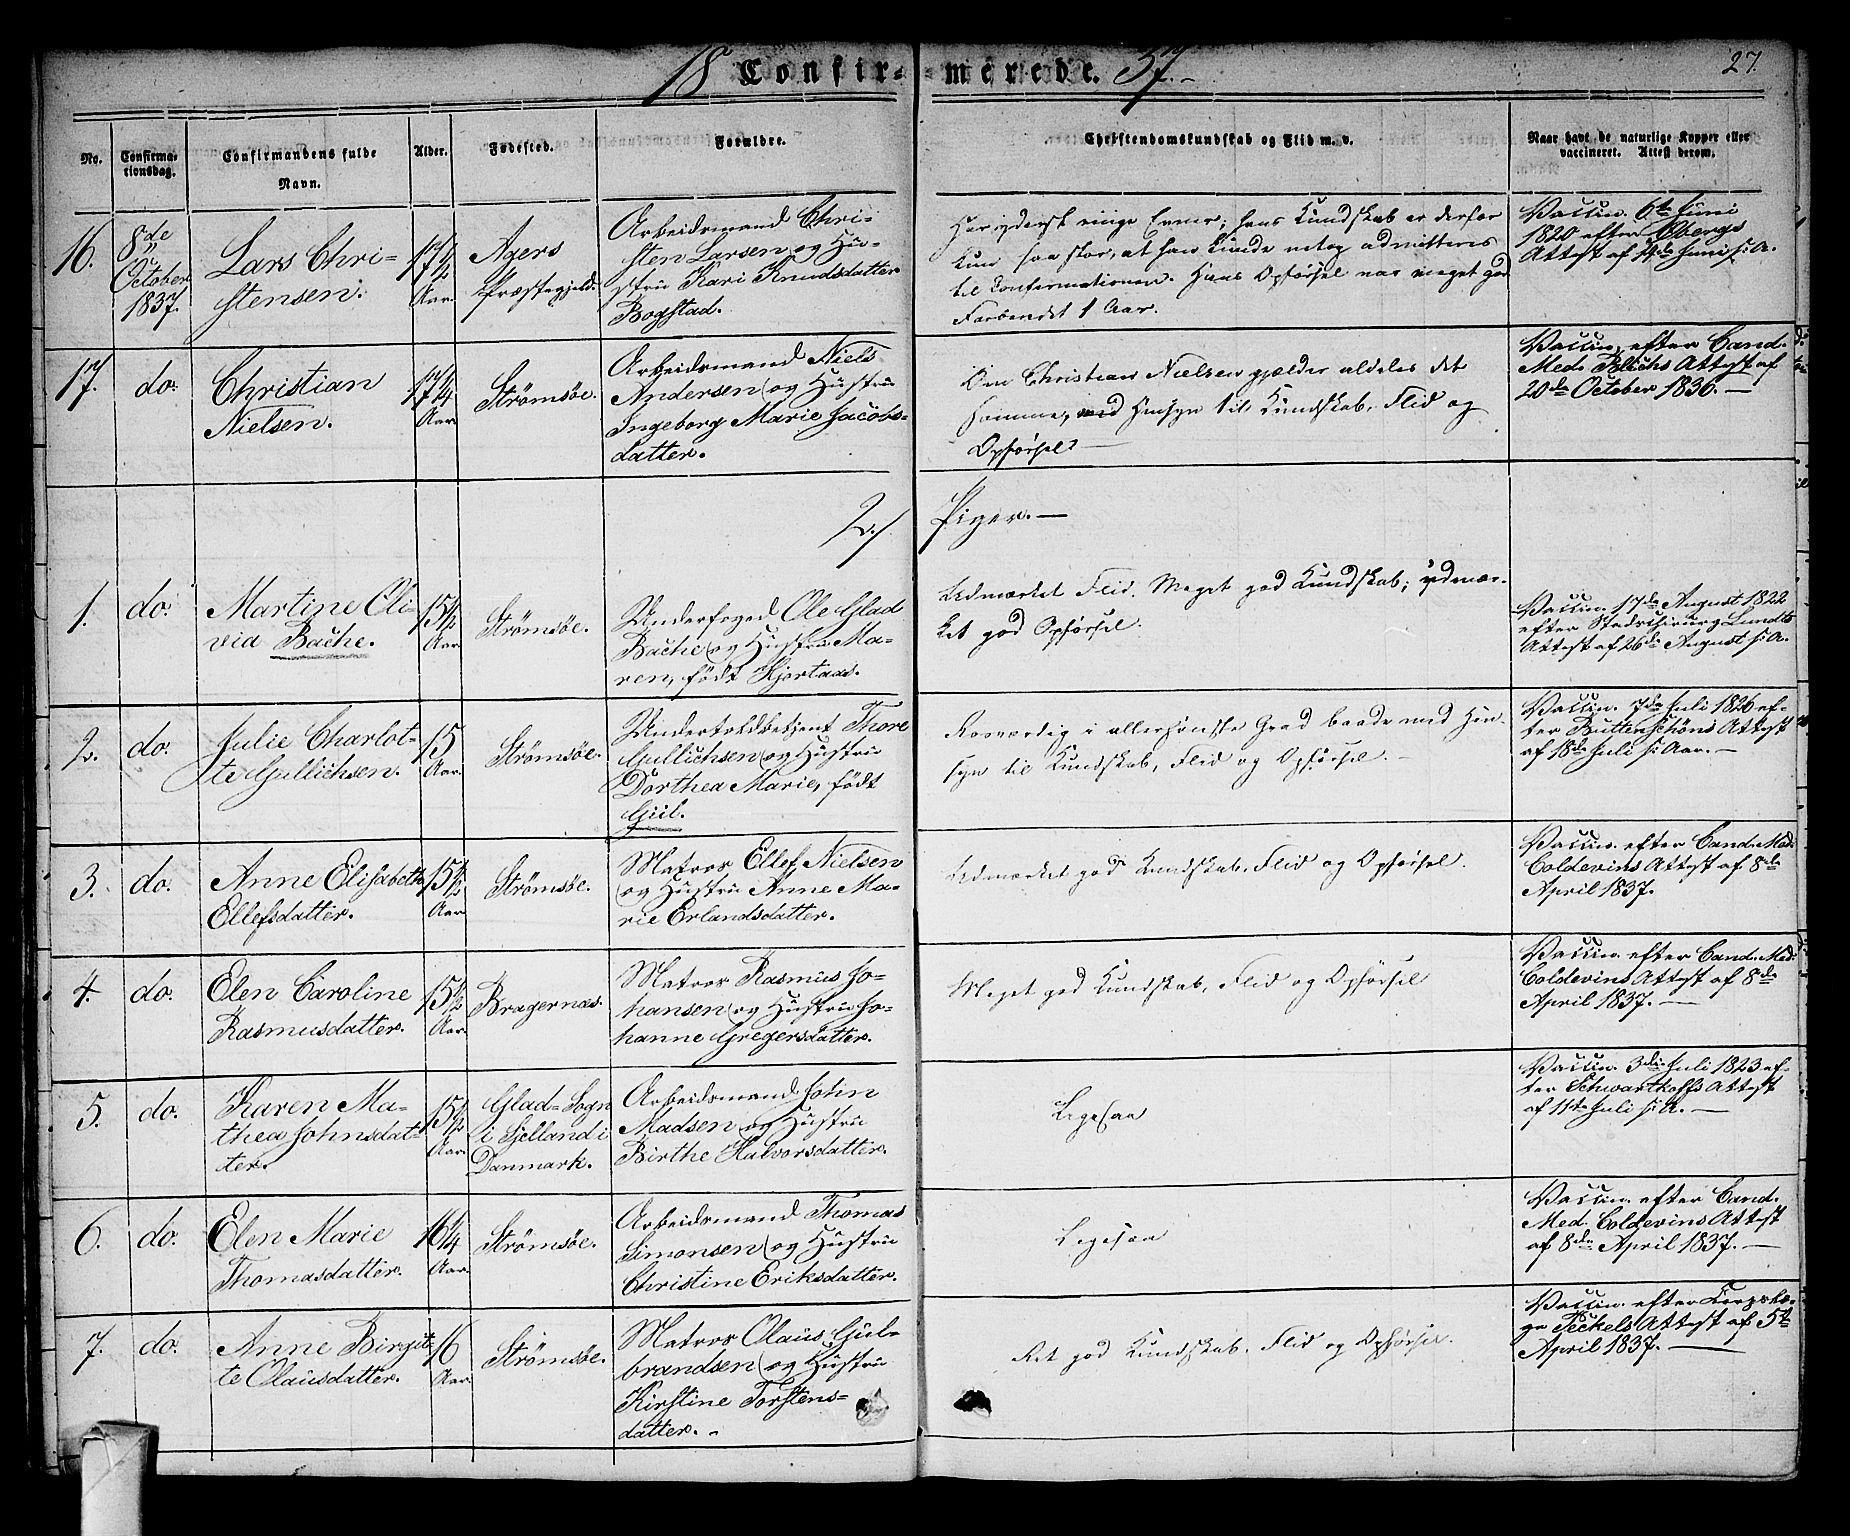 18 Confir- merede. 37.- 27.
No.
Confirma-
tionsdag.
Confirmandens fulde
Navn.
Alder.
Fødested.
Forældre.
Christendomskundskab og Flid m. v.
Naar havt de naturlige Kopper eller
vaccineret. Attest derom.
16.
8de
October
1837.
Lars Chri-
stensen.
17 1/4
Aar.
Agers
Præstegjeld.
Arbeidsmand Chri-
sten Larsen og Hu-
stru Kari Knudsdatter
Bogstad.
Har yderst ringe Evner; hans Kundskab er derfor
kun saa stor, at han kunde netop admitteres
til Confirmationen. Hans Opførsel var meget god
Forberedet 1 Aar.
Vaccin. 6te Juni
1820 efter Obergs
Attest af 14de Juni s. A.
17.
do.
Christian
Nielsen.
17 1/4
Aar.
Strømsøe.
Arbeidsmand Niels
Andersen og Hustru
Ingeborg Marie Jacobs-
datter.
Om Christian Nielsen gjælder aldeles det
samme, med Hensyn til Kundskab, Flid og
Opførsel
Vaccin. efter Cand.
Med. Blichs Attest af
20de October 1836.—
2./ Piger.—
1.
do.
Martine Oli-
via Bache.
15 1/2
Aar.
Strømsøe.
Underfoged Ole Glad
Bache og Hustru Ma-
ren, født Hjortaas.
Udmærket Flid. Meget god Kundskab; udmær-
ket god Opførsel.
Vaccin. 17de August 1822
efter Stadschirurg Lundts
Attest af 26de August s. A.
2.
do.
Julie Charlot-
te Gullichsen.
15
Aar.
Strømsøe.
Undertoldbetjent Thore
Gullichsen og Hustru
Dorthea Marie, født
Giil.
Rosværdig i allerhøieste Grad baade med Hen-
syn til Kundskab, Flid og Opførsel.—
Vaccin. 7de Juli 1826 ef-
ter Buttenschøns Attest
af 18de Juli s. Aar.—
3.
do.
Anne Elisabeth
Ellefsdatter.
15 1/2
Aar.
Strømsøe.
Matros Ellef Nielsen
og Hustru Anne Ma-
rie Erlandsdatter.
Udmærket god Kundskab, Flid og Opførsel.
Vaccin. efter Cand. Med.
Coldevins Attest af 8de
April 1837.
4.
do.
Elen Caroline
Rasmusdatter.
15 1/2
Aar.
Bragernæs.
Matros Rasmus Jo-
hansen og Hustru Jo-
hanne Gregersdatter.
Meget god Kundskab, Flid og Opførsel
Vaccin. efter Cand. Med.
Coldevins Attest af 8de
April 1837.—
5.
do.
Karen Ma-
thea Johnsdat-
ter.
15 1/2
Aar.
Glad-Sogn
i Sjelland i
Danmark.
Arbeidsmand John
Madsen og Hustru
Birthe Halvorsdatter.
Ligesaa
Vaccin. 3die Juli 1823 ef-
ter Schwartkoffs Attest
af 11te Juli s. A.—
6.
do.
Elen Marie
Thomasdatter.
16 1/4
Aar.
Strømsøe.
Arbeidsmand Thomas
Simonsen og Hustru
Christine Eriksdatter.
Ligesaa
Vaccin. efter Cand.
Med. Coldevins Attest
af 8de April 1837.—
7.
do.
Anne Birgit-
te Olausdatter.
16
Aar.
Strømsøe.
Matros Olaus Gul-
brandsen og Hustru
Kirstine Torstens-
datter.-
Ret god Kundskab, Flid og Opførsel.
Vaccin. efter Korpslæ-
ge Peckels Attest af 5te
April 1837.—